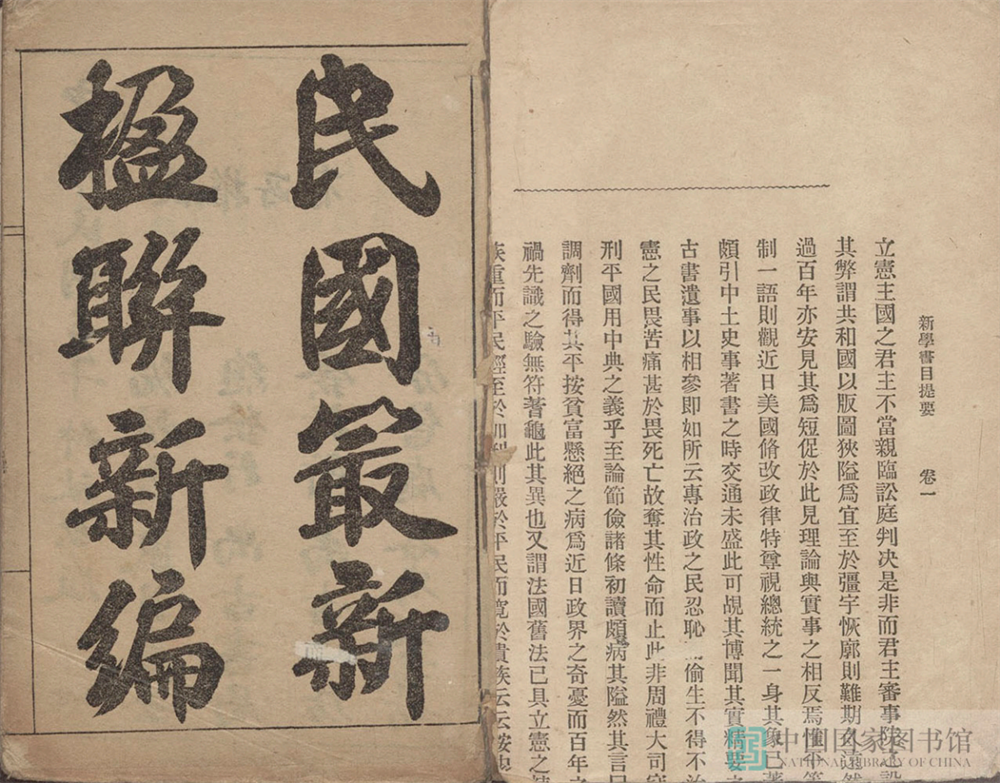 民國最新
楹聯新編
新學書目提要 卷一
立憲主國之君主不當親臨訟庭判决是非而君主審事院之設
其弊謂共和國以版圖狹隘爲宜至於彊宇恢廓則難期久遠然
過百年亦安見其爲短促於此見理論與實事之相反焉惟平等
制一語則觀近日美國脩改政律特尊視總統之一身其象已著
頗引中土史事著書之時交通未盛此可覘其博聞其實精要之
古書遺事以相參即如所云專治政之民忍恥 偷生不得不治
憲之民畏苦痛甚於畏死亡故奪其性命而止此非周禮大司寇
刑平國用中典之義乎至論節儉諸條初讀頗病其隘然其言曰
調劑而得其平按貧富懸絕之病爲近日政界之奇憂而百年之
禍先識之驗無符蓍龜此其異也又謂法國舊法已具立憲之
族重而平民輕至於加 則嚴於平民而寬於貴族云云按
中国国家图书馆
NATIONAL LIBRARY OF CHINA